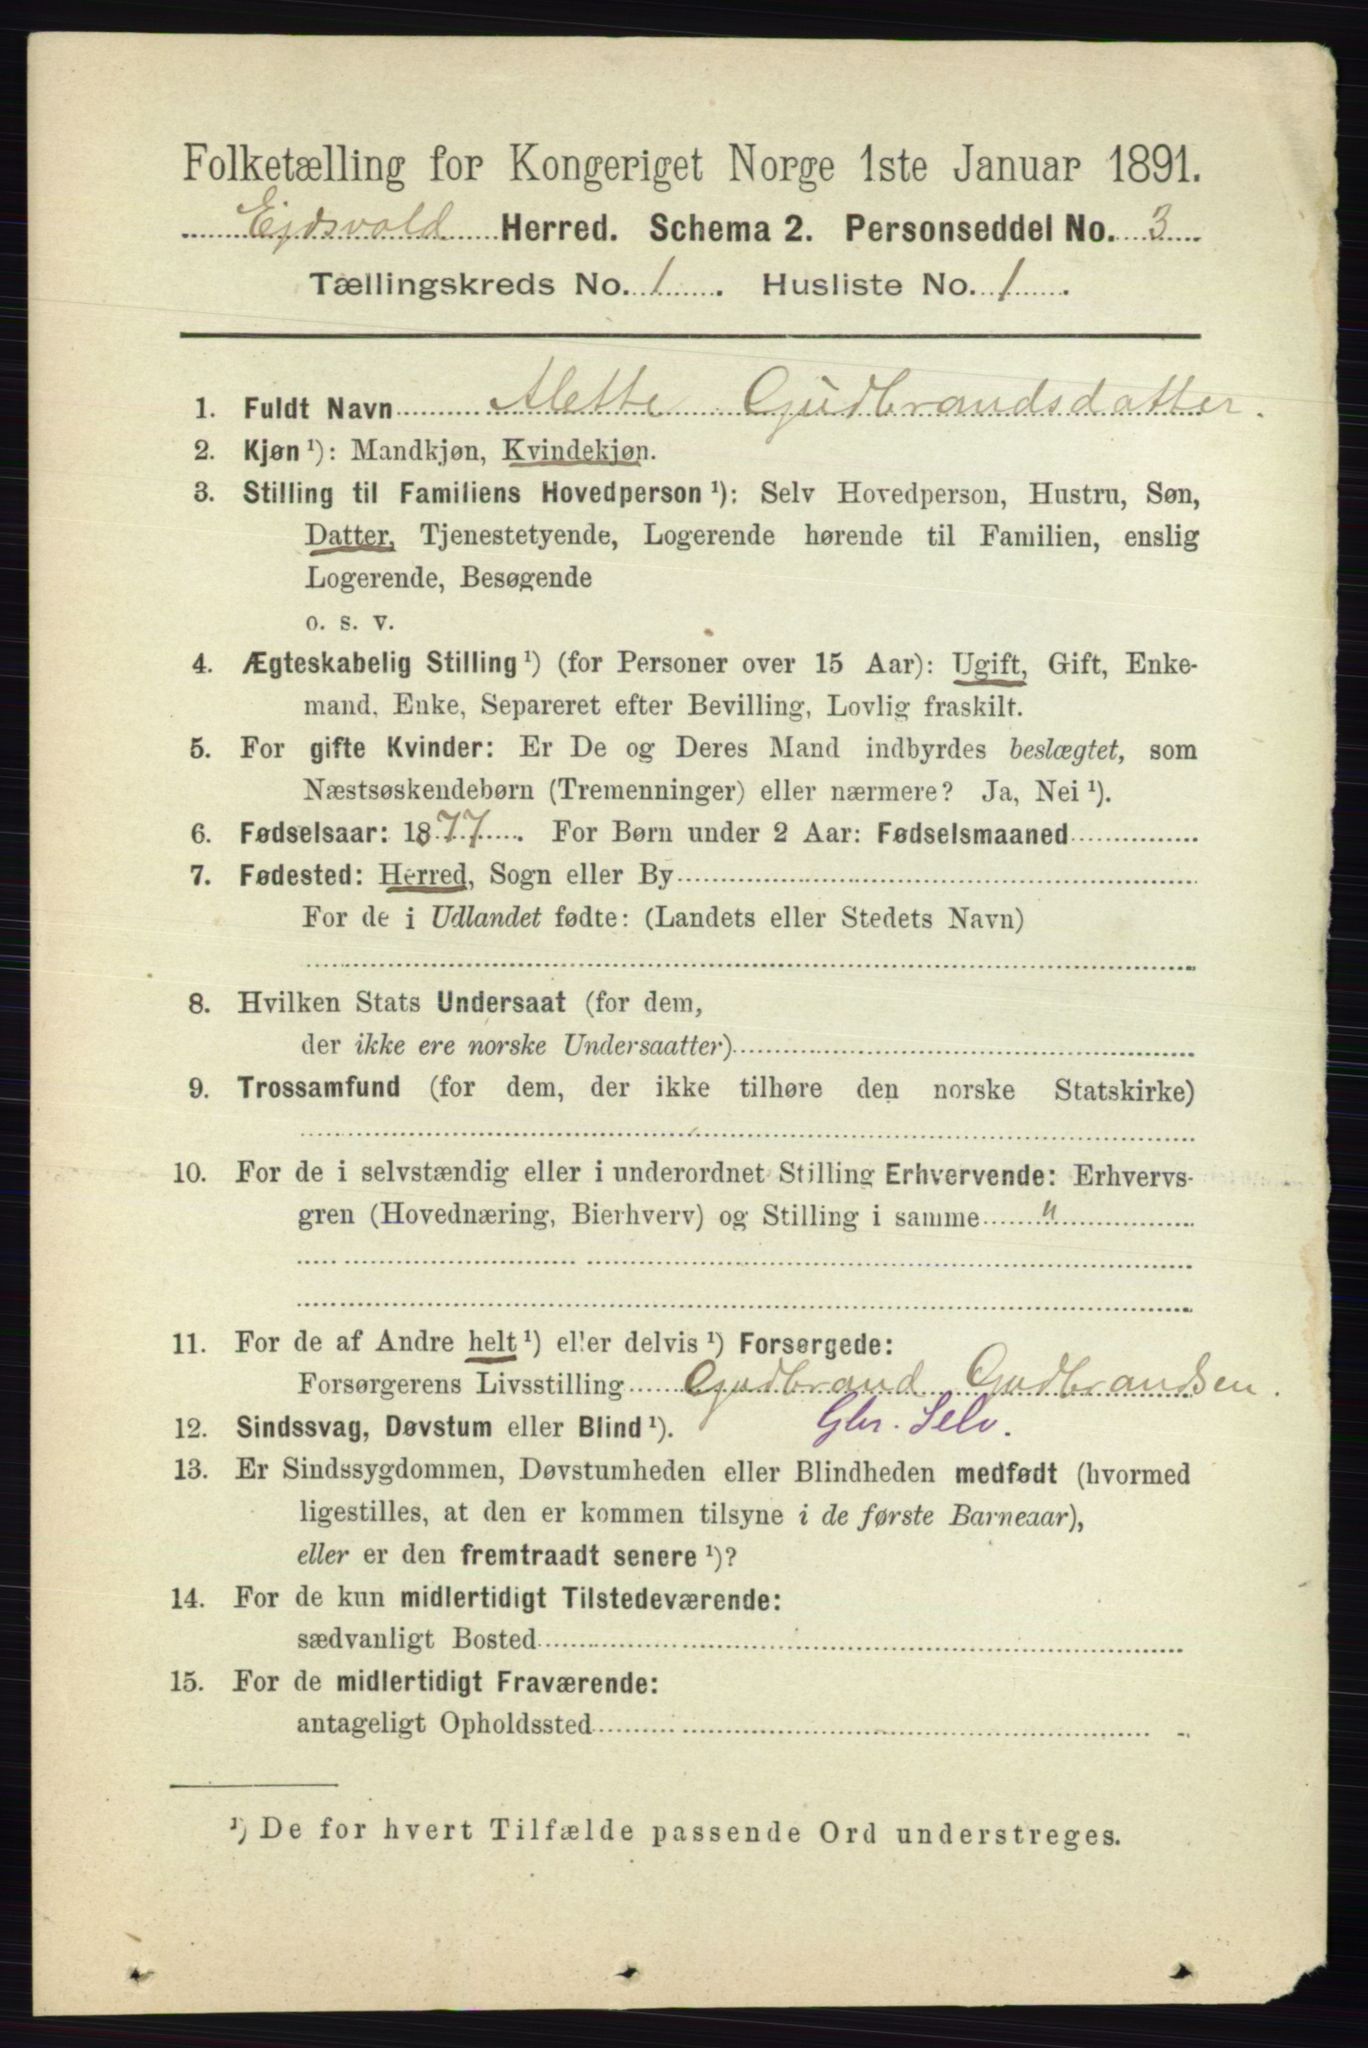 Folketælling for Kongeriget Norge 1ste Januar 1891.
Ejdsvold Herred. Schema 2. Personseddel No. 3
Tællingskreds No. 1. Husliste No. 1.
1. Fuldt Navn Alette Gudbrandsdatter.
2. Kjøn ¹): Mandkjøn, Kvindekjøn.
3. Stilling til Familiens Hovedperson ¹): Selv Hovedperson, Hustru, Søn,
Datter, Tjenestetyende, Logerende hørende til Familien, enslig
Logerende, Besøgende
o. s. v.
4. Ægteskabelig Stilling ¹) (for Personer over 15 Aar): Ugift, Gift, Enke-
mand, Enke, Separeret efter Bevilling, Lovlig fraskilt.
5. For gifte Kvinder: Er De og Deres Mand indbyrdes beslægtet, som
Næstsøskendebørn (Tremenninger) eller nærmere? Ja, Nei ¹).
6. Fødselsaar: 1877. For Børn under 2 Aar: Fødselsmaaned
7. Fødested: Herred, Sogn eller By
For de i Udlandet fødte: (Landets eller Stedets Navn)
8. Hvilken Stats Undersaat (for dem,
der ikke ere norske Undersaatter)
9. Trossamfund (for dem, der ikke tilhøre den norske Statskirke)
10. For de i selvstændig eller i underordnet Stilling Erhvervende: Erhvervs-
gren (Hovednæring, Bierhverv) og Stilling i samme "
11. For de af Andre helt ¹) eller delvis ¹) Forsørgede:
Forsørgerens Livsstilling Gudbrand Gudbrandsen.
Gbr. Selv.
12. Sindssvag, Døvstum eller Blind ¹).
13. Er Sindssygdommen, Døvstumheden eller Blindheden medfødt (hvormed
ligestilles, at den er kommen tilsyne i de første Barneaar),
eller er den fremtraadt senere ¹)?
14. For de kun midlertidigt Tilstedeværende:
sædvanligt Bosted
15. For de midlertidigt Fraværende:
antageligt Opholdssted
¹) De for hvert Tilfælde passende Ord understreges.